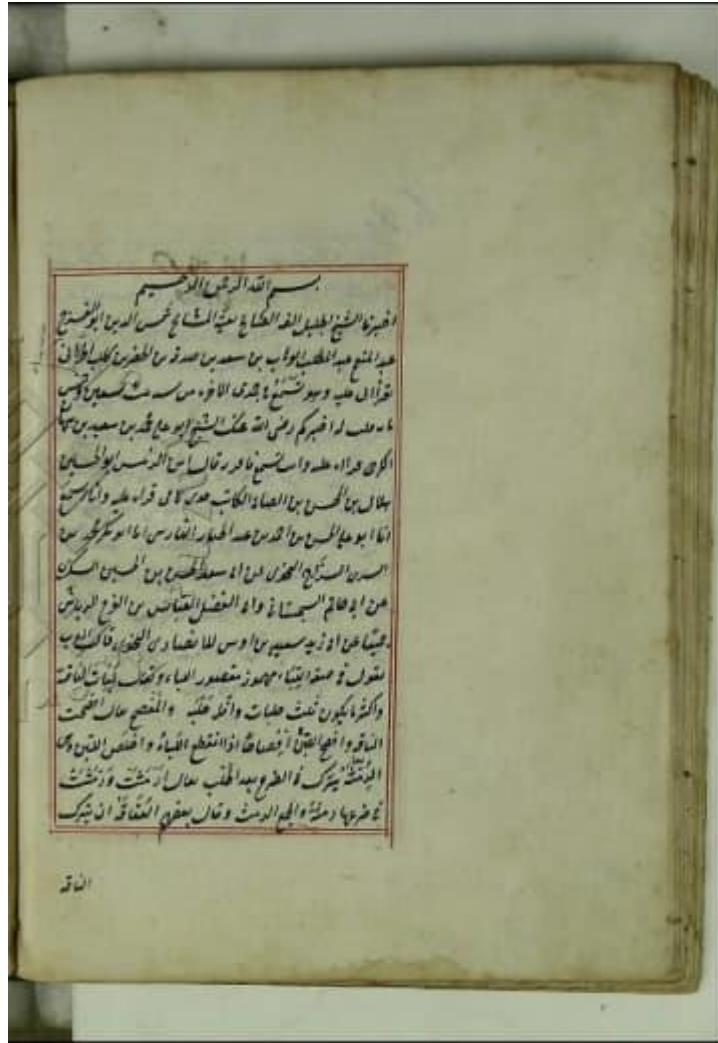 بسم الله الرحمن الرحيم
اخبرنا الشيخ الجليل بقية المشايخ شمس الدين ابو الفرج
عبد المنعم بن عبد الوهاب بن سعد بن صدقة بن الخضر بن كليب الحراني
عليه وهو يسمع في جمدى الاخره من سنة
قلت له اخبركم رضى الله عنك الشيخ ابو على محمد بن سعيد بن
الكرخى قراءه عليه وانت تسمع فاقر به قال الرئيس ابو الحسين
هلال بن المحسن بن الصابئ الكاتب قراءه عليه وانا اسمع
انا ابو على الحسن بن احمد بن عبد الغفار الفارسى انا ابو بكر محمد بن
السرى السراج النحوى عن ابى سعيد الحسن بن الحسين السكرى
عن ابى حاتم السجستانى وابى الفضل العباس بن الفرج الرياشى
جميعا عن ابى زيد سعيد بن اوس الانصارى النحوى قال العرب
يقول فى مهموز مقصور اللباء ويقال الناقة
واكثر ما يكون ثلث حلبات واقله حلبة والمفصح يقال افصحت
الناقة وافصح اللبن افصاحا اذا انقطع اللباء وخلص اللبن
يترك فى الضرع بعد الحلب يقال ارمثت ورمثت
فى ضرعها رمثة والجمع الرمث وقال بعضهم العفافة ان يترك
الناقة